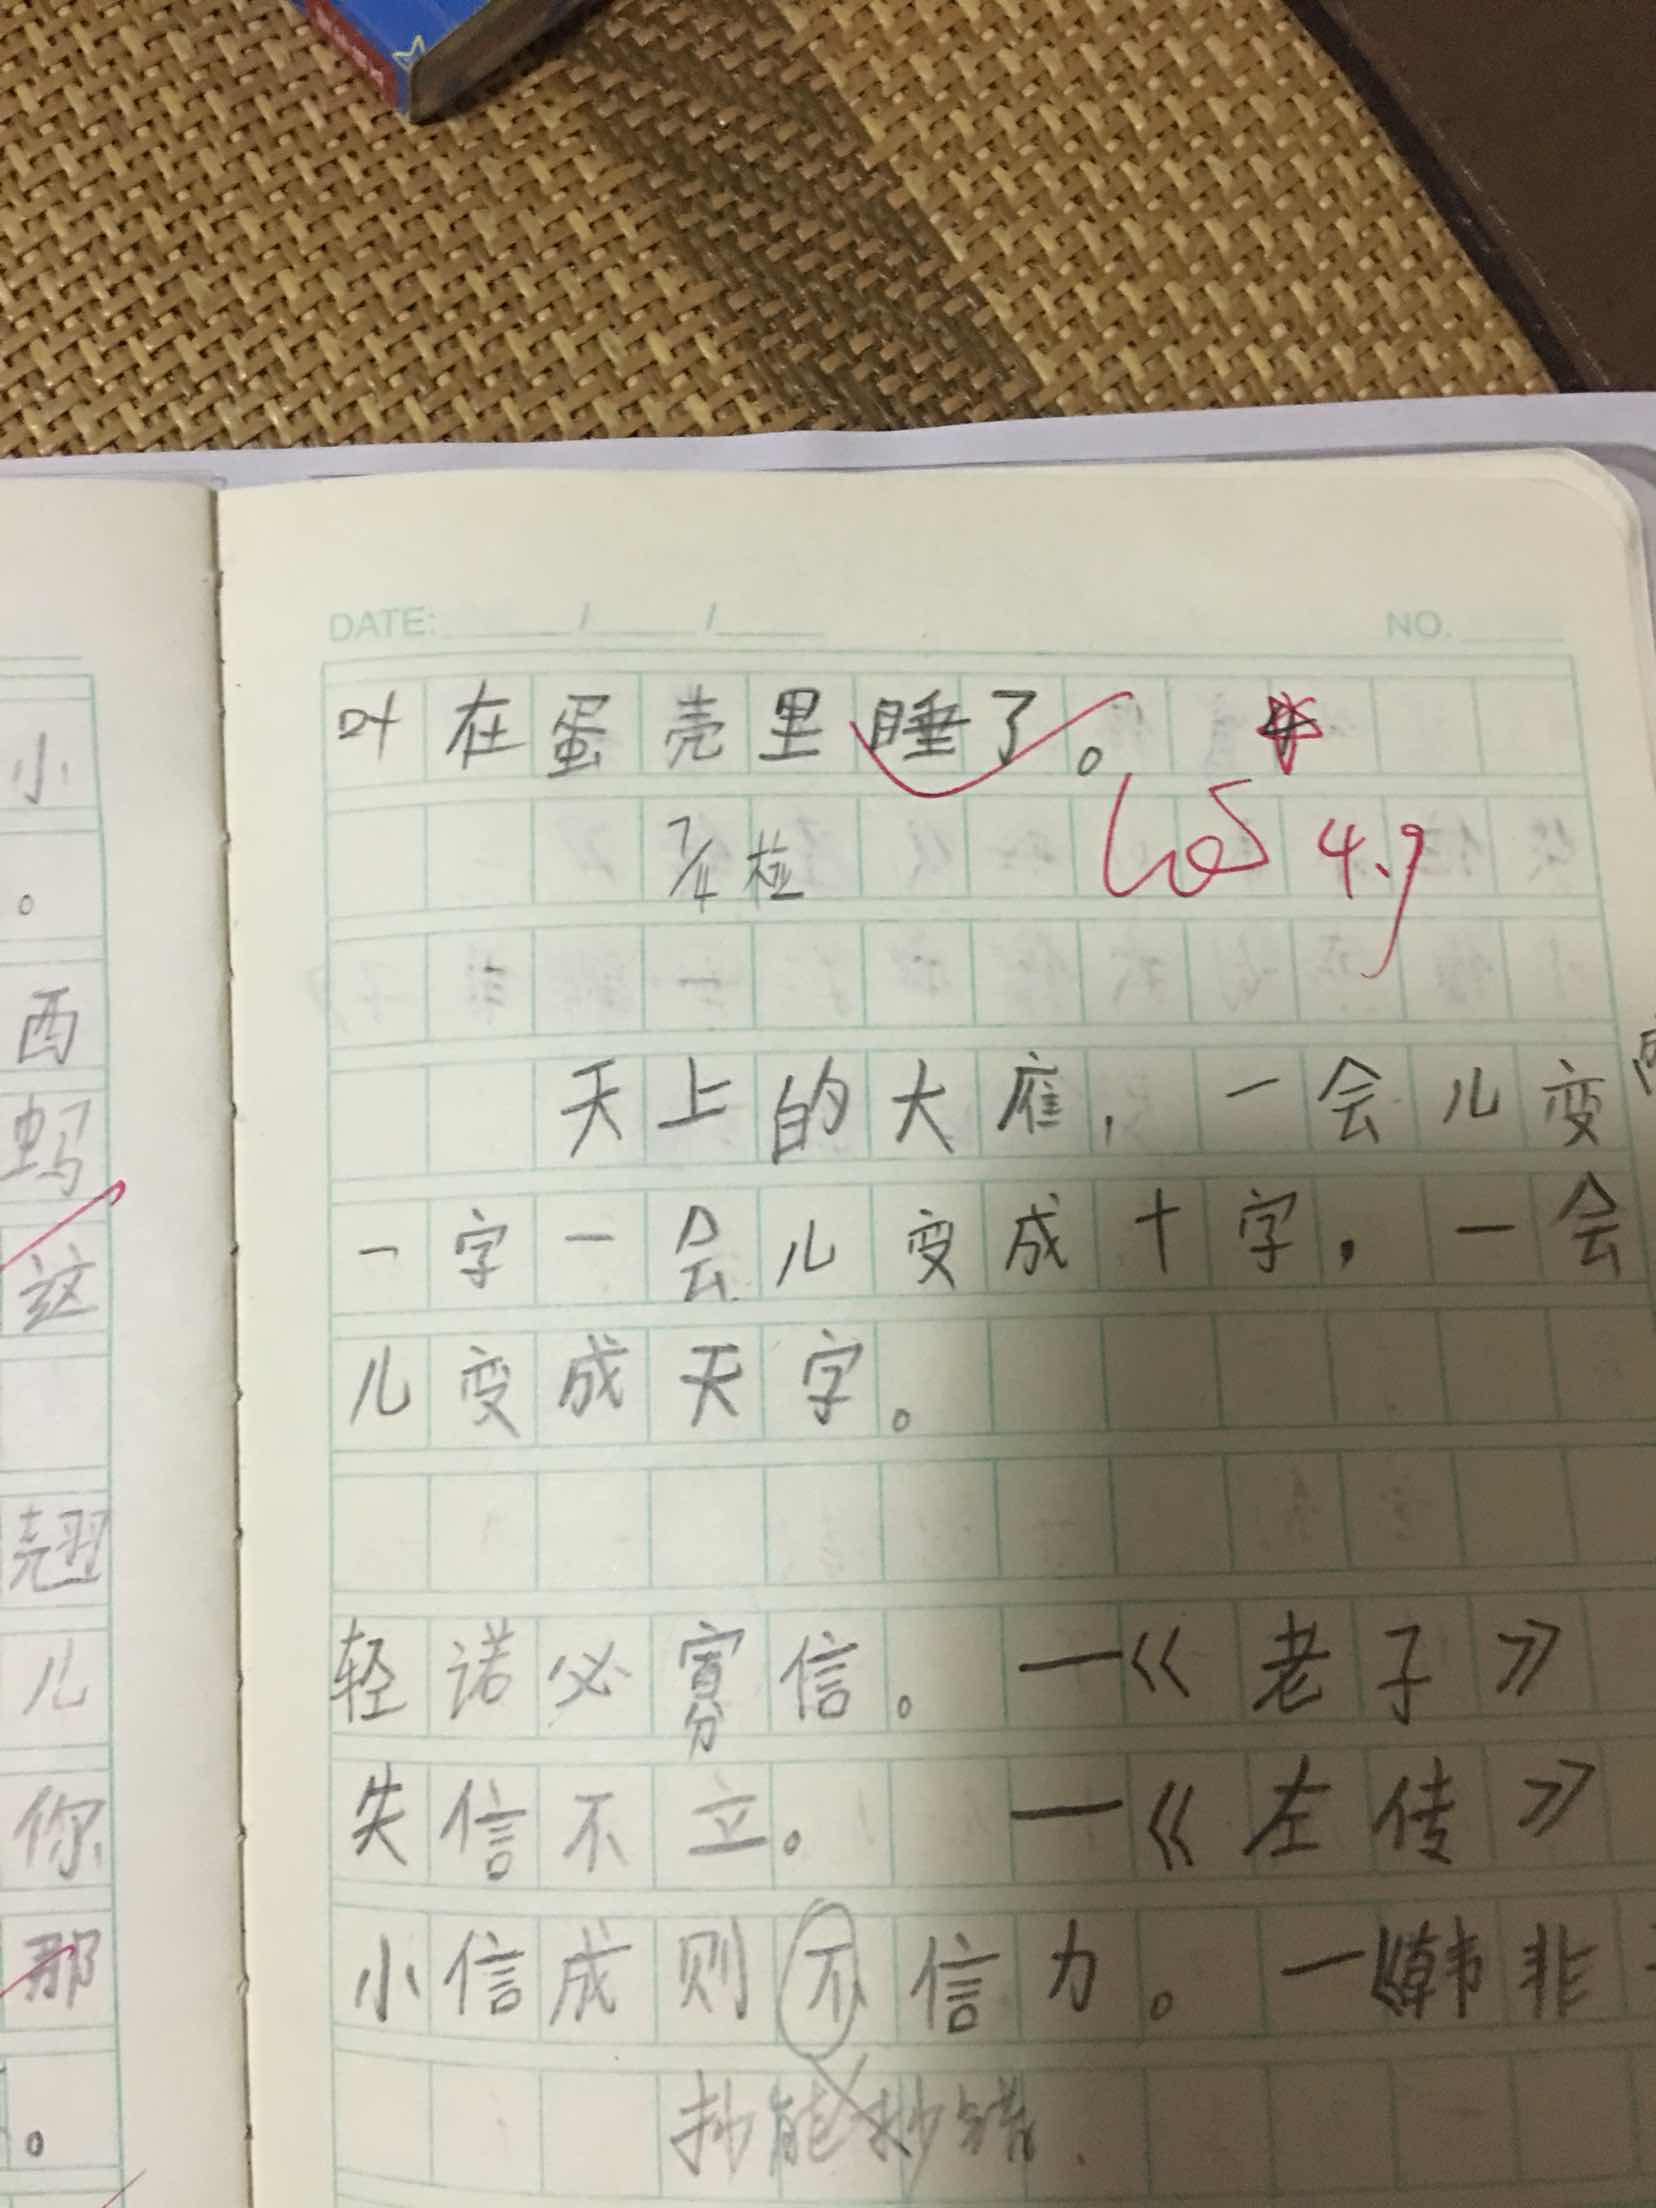 DATE: / / NO.
叶在蛋壳里睡了。
7/4
4.9
天上的大雁，一会儿变
一字一会儿变成十字，一会
儿变成天字。
轻诺必寡信。 —《老子》
失信不立。 —《左传》
小信成则不信力。 —《韩非
抄能抄错.
小
。
西
蚂
这
翘
儿
你
那
。